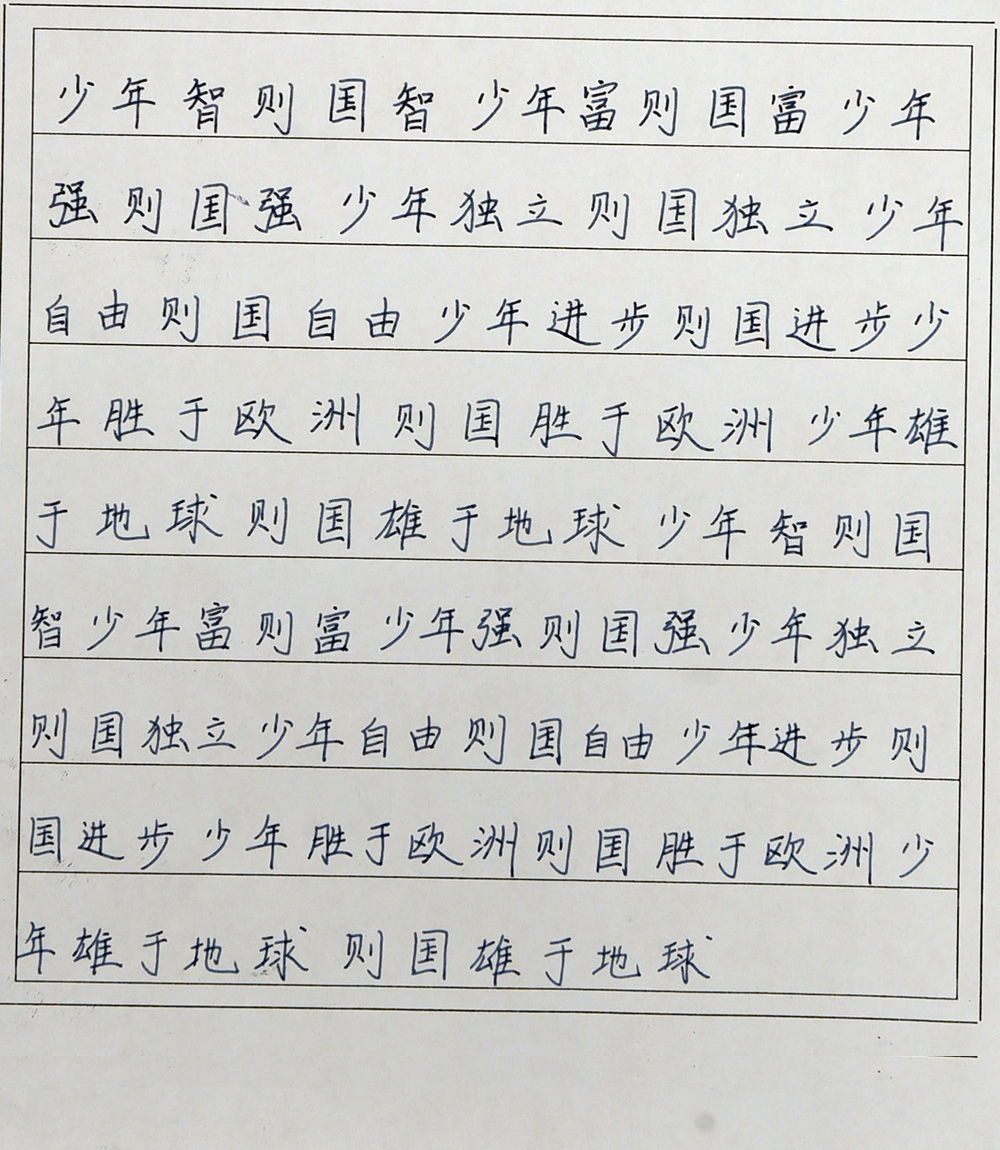 少年智则国智少年富则国富少年
强则国强少年独立则国独立少年
自由则国自由少年进步则国进步少
年胜于欧洲则国胜于欧洲少年雄
于地球则国雄于地球少年智则国
智少年富则富少年强则国强少年独立
则国独立少年自由则国自由少年进步则
国进步少年胜于欧洲则国胜于欧洲少
年雄于地球则国雄于地球